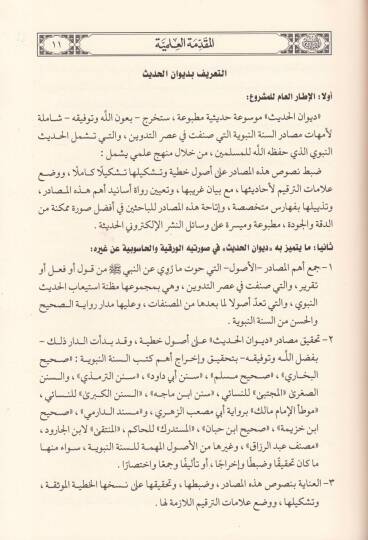 المقدمة العلمية
١١
التعريف بديوان الحديث
أولا: الإطار العام للمشروع:
«ديوان الحديث» موسوعة حديثية مطبوعة، ستخرج - بعون الله وتوفيقه - شاملة
لأمهات مصادر السنة النبوية التي صنفت في عصر التدوين، والتي تشمل الحديث
النبوي الذي حفظه الله للمسلمين، من خلال منهج علمي يشمل:
ضبط نصوص هذه المصادر على أصول خطية وتشكيلها تشكيلًا كاملًا، ووضع
علامات الترقيم لأحاديثها، مع بيان غريبها، وتعيين رواة أسانيد أهم هذه المصادر،
وتذييلها بفهارس متخصصة، وإتاحة هذه المصادر للباحثين في أفضل صورة ممكنة من
الدقة والجودة، مطبوعة وميسرة على وسائل النشر الإلكتروني الحديثة.
ثانيا: ما يتميز به «ديوان الحديث» في صورتيه الورقية والحاسوبية عن غيره:
١- جمع أهم المصادر -الأصول- التي حوت ما رُوي عن النبي ﷺ من قول أو فعل أو
تقرير، والتي صنفت في عصر التدوين، وهي بمجموعها مظنة استيعاب الحديث
النبوي، والتي تعدّ أصولا لما بعدها من المصنفات، وعليها مدار رواية الصحيح
والحسن من السنة النبوية.
٢- تحقيق مصادر «ديوان الحديث» على أصول خطية، وقد بدأت الدار ذلك -
بفضل الله وتوفيقه- بتحقيق وإخراج أهم كتب السنة النبوية: «صحيح
البخاري»، «صحيح مسلم»، «سنن أبي داود»، «سنن الترمذي»، والسنن
الصغرى «المجتبى» للنسائي، «سنن ابن ماجه»، «السنن الكبرى» للنسائي،
«موطأ الإمام مالك» برواية أبي مصعب الزهري، و«مسند الدارمي»، «صحيح
ابن خزيمة»، «صحيح ابن حبان»، «المستدرك» للحاكم، «المنتقى» لابن الجارود،
«مصنف عبد الرزاق»، وغيرها من الأصول المهمة للسنة النبوية، سواء منها
ما كان تحقيقًا وضبطًا وإخراجًا، أو تأليفًا وجمعًا واختصارًا.
٣- العناية بنصوص هذه المصادر، وضبطها، وتحقيقها على نسخها الخطية الموثقة،
وتشكيلها، ووضع علامات الترقيم اللازمة لها.